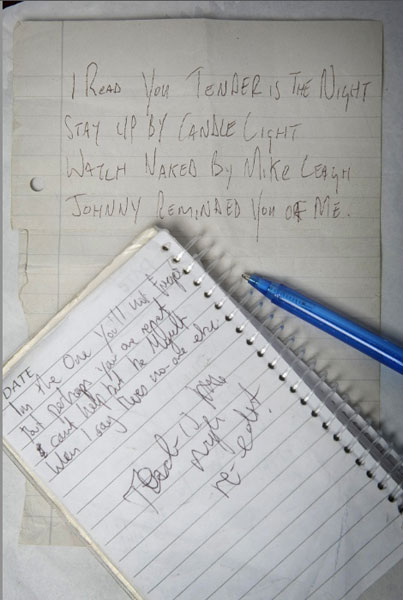 I READ YOU TENDER IS THE NIGHT
STAY UP BY CANDLE LIGHT
WATCH NAKED BY MIKE LEAGH
JOHNNY REMINDED YOU OF ME.
DATE
Im the One You'll not forget
But perhaps you are regret
can't help but be
When I say theres no-one else
re-edit!